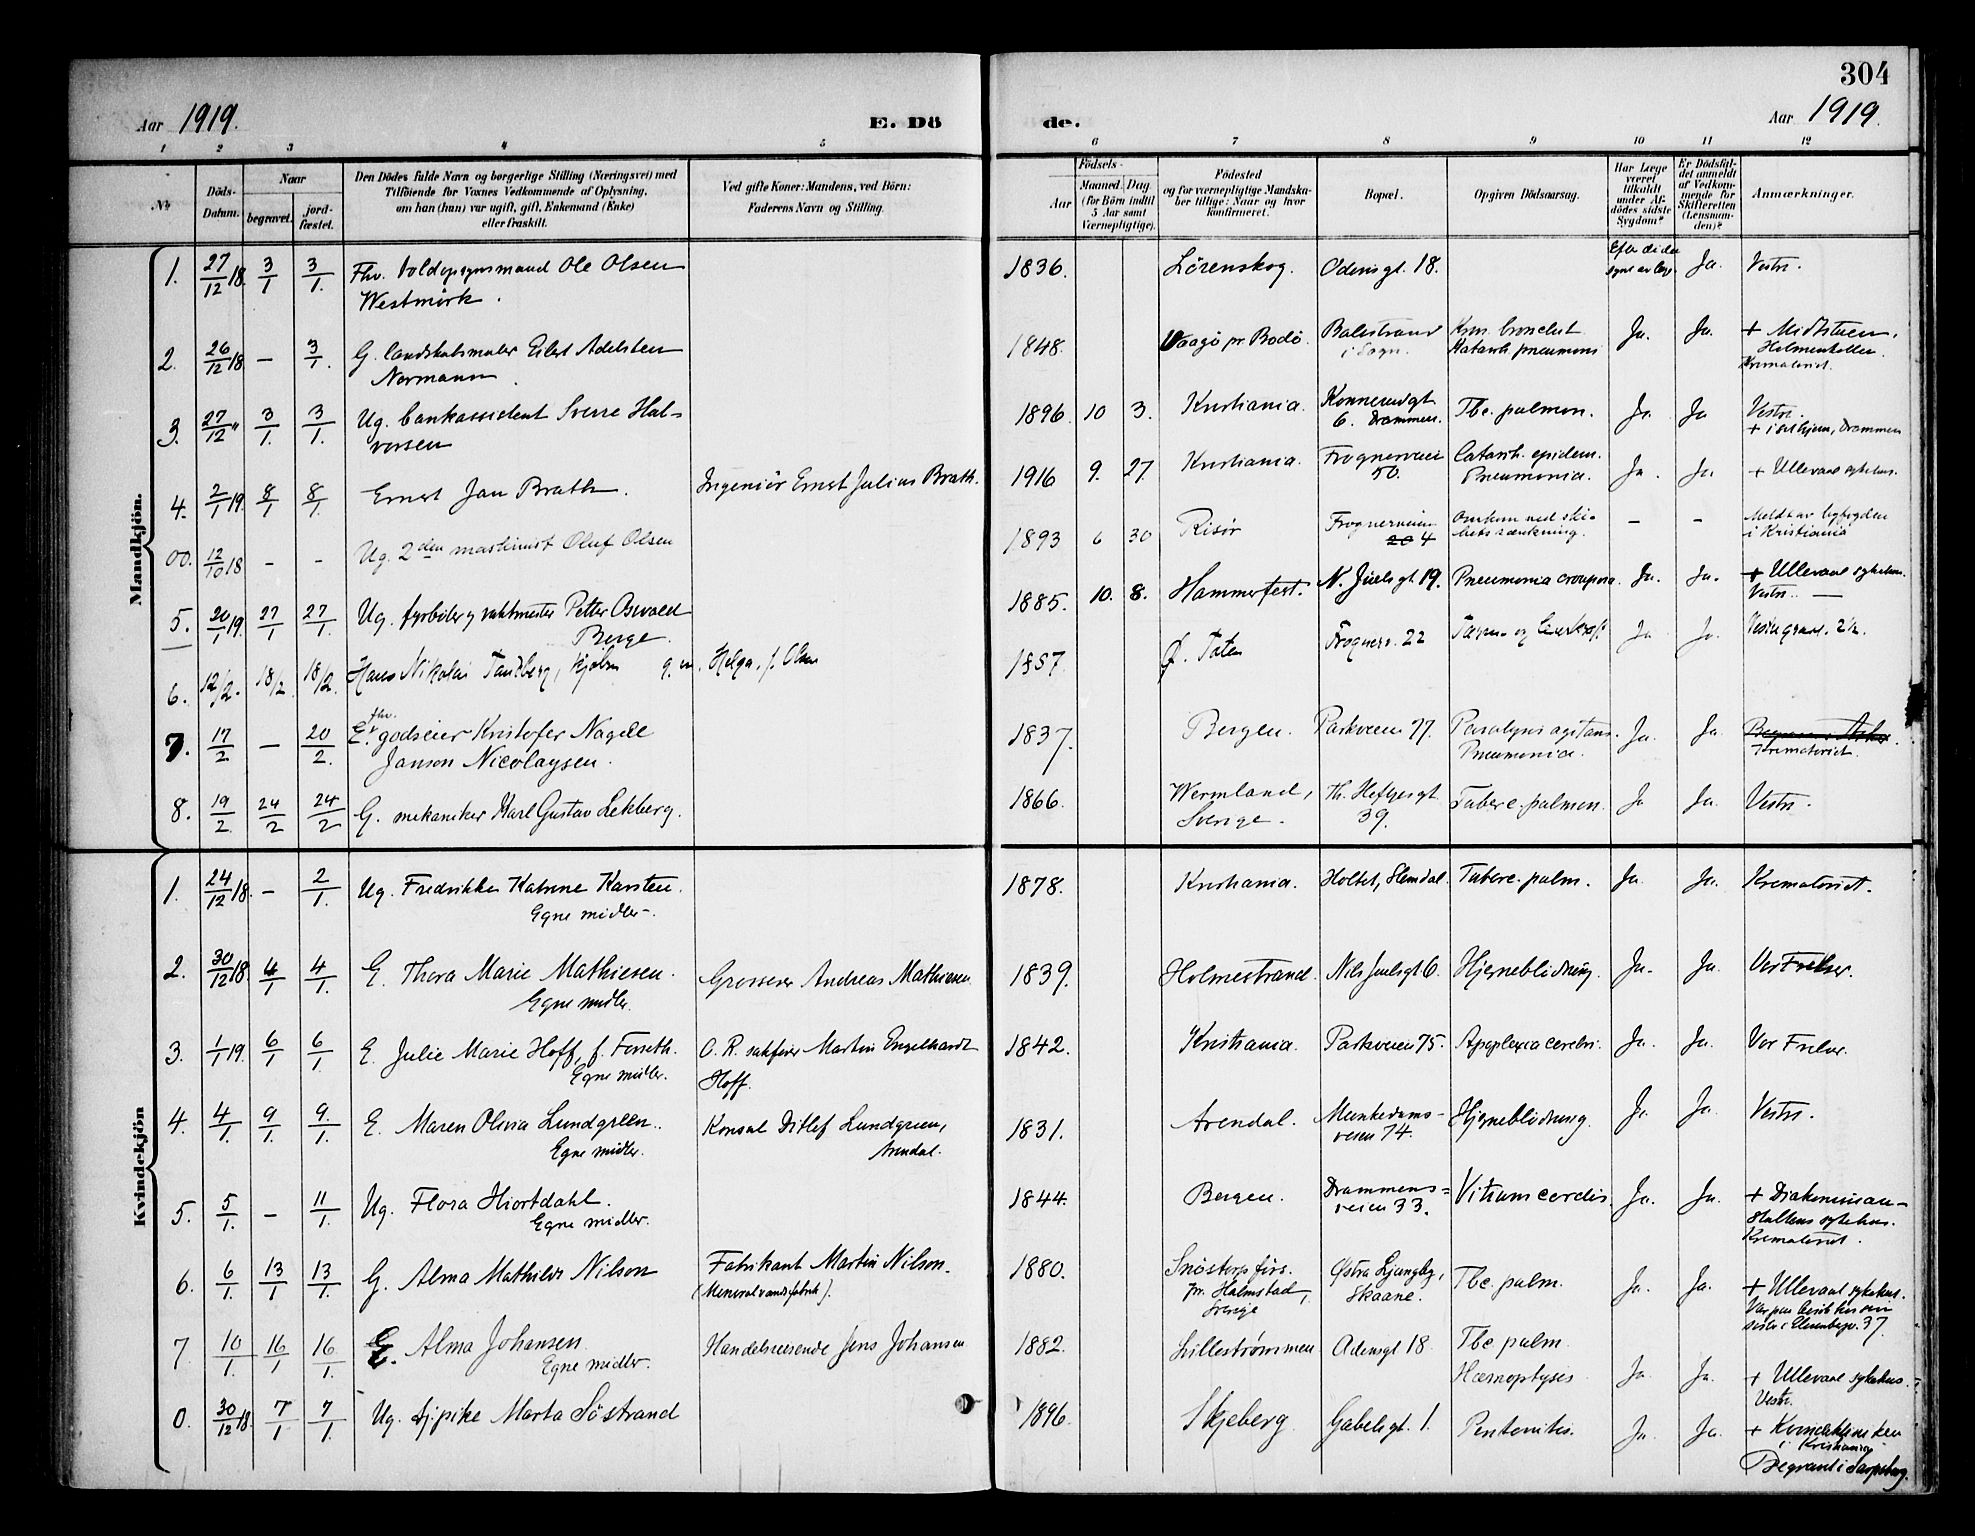 304
Aar 1919.
E. Dö
de.
Aar 1919.
1 2 3 4 5 6 7 8 9 10 11 12
No
Döds-Datum.
Naar
begravet.
jordfæstet.
Den Dödes fulde Navn og borgerlige Stilling (Næringsvei) med
Tilföiende for Voxnes Vedkommende af Oplysning,
om han (hun) var ugift, gift, Enkemand (Enke)
eller fraskilt.
Ved gifte Koner: Mandens, ved Börn:
Faderens Navn og Stilling.
Födsels-
Aar
Maaned. Dag
(for Börn indtil
5 Aar samt
Værnepligtige).
Födested
og for værnepligtige Mandskaber tillige: Naar og hvor
konfirmeret.
Bopæl.
Opgiven Dödsaarsag.
Har Læge
været
tilkaldt
under Afdödes sidste
Sygdom?
Er Dödsfaldet anmeldt
af Vedkommende for
Skifteretten
(Lensmanden)?
Anmærkninger.
Mandkjön.
1. 27/12 18. 3/1 3/1. Fhv. toldopsynsmand Ole Olsen
Westmörk. 1836. Lörenskog. Odensgt. 18. Ja. Vestre.
2. 26/12 18 — 3/1. G. landskabsmaler Eilert Adelsten
Normann. 1848. Vaagö pr. Bodö. Balestrand
i Sogn. Kron. bronchit
Katarrh. pneumoni Ja. Ja. + Midtstuen,
Holmenkollen.
Krematoriet.
3. 27/12 " 3/1. 3/1. Ug. bankassistent Sverre Halvorsen 1896 10 3. Kristiania. Konnerudgt
6. Drammen. Tbc. pulmon. Ja Ja Vestre.
Drammen
4. 2/1 19. 8/1 8/1. Ernst Jan Brath. Ingeniör Ernst Julius Brath. 1916 9. 27. Kristiania. Frognerveien
50. Catarrh. epidem.
Pneumonia. Ja. Ja. + Ullevaal sykehus.
00. 12/10 18 - - Ug. 2den maskinist Oluf Olsen 1893 6 30 Risör Frognerveien
20 4 Omkom ved skibets sænkning. - -
i Kristiania
5. 20/1 19. 27/1 27/1. Ug. fyrböter og vaktmester Petter Oswald
Berge. 1885. 10. 8. Hammerfest. N. Juelsgt 19. Pneumonia crouposa. Ja. Ja. + Ullevaal sykehus.
Vestre. —
6. 12/2. 18/2 18/2. Hans Nikolai Tandberg, g. m. Helga, f. Olsen 1857 Ø. Toten Frognerv. 22 Ja Ja.
7. 17/2 — 20/2. E. fhv. godseier Kristofer Nagel
Janson Nicolaysen. 1837. Bergen. Parkveien 77. Paralysis agitans.
Pneumonia. Ja. Ja.
Krematoriet.
8. 19/2 24/2 24/2 G. mekaniker Karl Gustav Lekberg. 1866. Wermland,
Sverige. Th. Heftyesgt
39. Tuberc. pulmon. Ja Ja. Vestre.
Kvindekjön
1. 24/12 18. - 2/1. Ug. Fredrikke Katrine Karsten.
Egne midler. 1878. Kristiania. Holtet, Slemdal. Tuberc. palm. Ja. Ja. Krematoriet.
2. 30/12 18. 4/1 4/1. E. Thora Marie Mathiesen.
Egne midler. Grosserer Andreas Mathiesen 1839. Holmestrand. Nils Juelsgt 6. Hjerneblödning. Ja. Ja. Vor Frelser.
3. 1/1 19. 6/1 6/1 E. Julie Marie Hoff, f. Forseth.
Egne midler. O. R. sakförer Martin Engelhardt
Hoff. 1842. Kristiania. Parkveien 75. Apoplexia cerebri. Ja. Ja. Vor Frelser.
4. 4/1. 9/1. 9/1. E. Maren Olivia Lundgreen.
Egne midler. Konsul Ditlef Lundgreen,
Arendal. 1831. Arendal. Munkedamsveien 74. Hjerneblödning. Ja Ja. Vestre.
5. 5/1. - 11/1. Ug. Flora Hiortdahl.
Egne midler. 1844. Bergen. Drammensveien 33. Vitium cordis Ja. Ja. + Diakonissanstaltens sykehus.
Krematoriet.
6. 6/1. 13/1 13/1. G. Alma Mathilde Nilson Fabrikant Martin Nilson.
(Mineralvandsfabrik). 1880. Snöstorps förs.
pr. Halmstad,
Sverige Östra Ljungby,
Skaane. Tbc. palm. Ja. Ja. + Ullevaal sykehus.
Var paa besök hos sin
söster i Eilersbgv. 37.
7 10/1. 16/1 16/1. E. Alma Johansen
Egne midler. Handelsreisende Jens Johansen 1882. Lilleströmmen Odensgt 18 Tbc palm
Hæmoptysis Ja. Ja. + Ullevaal sykehus.
Vestre.
0. 30/12 18. 7/1 7/1. Ug. tjpike Marta Söstrand 1896. Skjeberg Gabelsgt. 1. Peritonitis. Ja. Ja. + Kvindeklinikken
i Kristiania
Begravet i Sarpsborg.